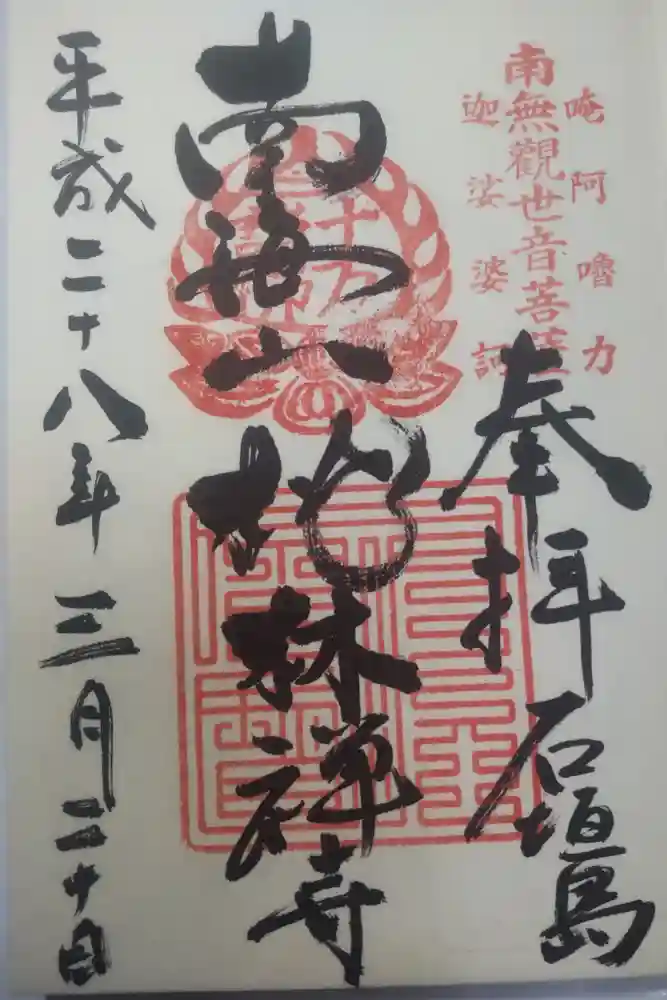 唵阿嚕力
南無觀世音菩薩
迦娑婆訶
奉拝 石垣島
南海山 桃林禅寺
平成二十八年三月二十日